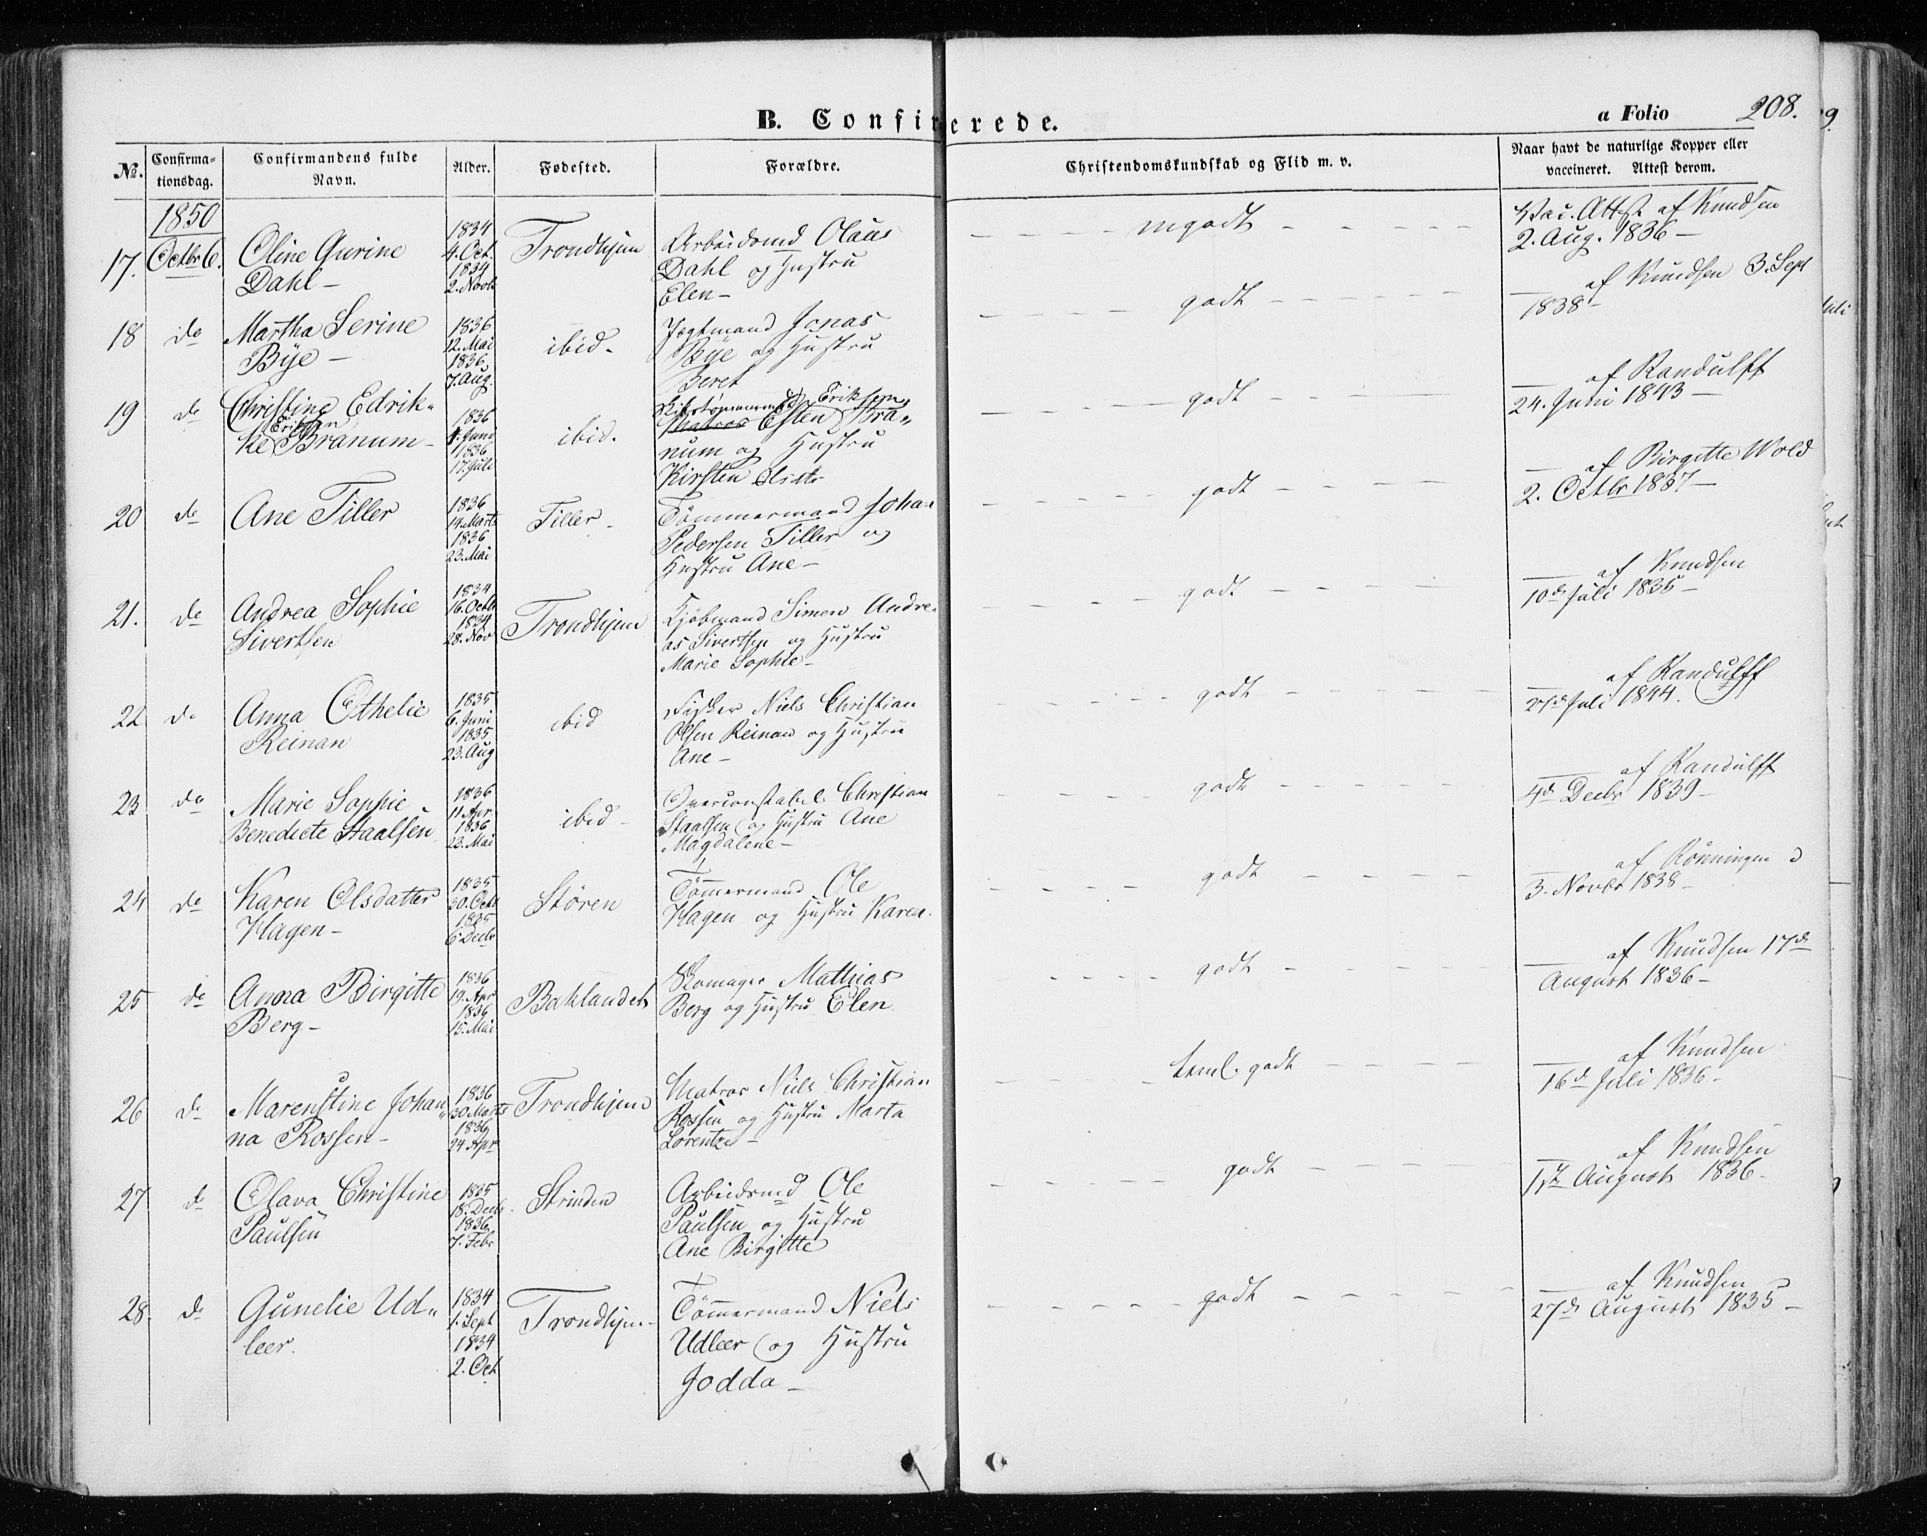 B. Confirmerede.
a Folio 208.
№. Confirmationsdag. Confirmandens fulde Navn. Alder. Fødested. Forældre. Christendomskundskab og Flid m. v. Naar havt de naturlige Kopper eller vaccineret. Attest derom.
1850
17. Octbr 6. Oline Gurine Dahl – 1834 4. Oct. 1834 2. Novb Trondhjem Arbeidsmd Olaus Dahl og Hustru Elen – mgodt Vac. Attst af Knudsen 2. Aug. 1836 –
18 do Martha Serine Bye – 1836 12. Mai 1836 7. Aug. ibid. Jegtmand Jonas Bye og Hustru Beret godt – af Knudsen 3. Sept 1838 –
19 do Christine Edrik„ke Eriksen Branum – 1836 1836 17. Juli ibid. Eriksen Matros Esten Bra„num og Hustru Kirsten godt – af Randulff 24. Juni 1843 –
20 do Ane Tiller 1836 14. Marts 1836 23. Mai Tiller – Tømmermand Johan Pedersen Tiller og Hustru Ane – godt – af Birgitte Wold 2. Octbr 1837 –
21. do Andrea Sophie Sivertsen 1834 16. Octb 1834 28. Nov Trondhjem Kjøbmand Simen Andre„as Sivertsen og Hustru Marie Sophie – godt – af Knudsen 10de Juli 1835 –
22 do Anna Othelie Reinan 1835 6. Juni 1835 23. Aug ibid Fisker Niels Christian Olsen Reinan og Hustru Ane – godt – af Randulff 27de Juli 1844.
23 do Marie Sophie Benedicte Staalsen 1836 11. Apr. 1836 23. Mai ibid – Overconstabel Christian Staalsen og Hustru Ane Magdalene – godt – af Randulff 4de Decbr 1839 –
24 do Karen Olsdatter Hagen – 1835 30. Octb 1835 6 Decbr Støren Tømmermand Ole Hagen og Hustru Karen. godt – af Rønningen 3. Novbr 1838 –
25 do Anna Birgitte Berg – 1836 19. Apr 1836 15. Mai Baklandet Skomager Mathias Berg og Hustru Elen godt – af Knudsen 17de August 1836 –
26 do Marenstine Johan„na Rossen – 1836 30. Marts 1836 24. Apr Trondhjem Matros Niels Christian Rossen og Hustru Marta Lorentze – teml. godt – af Knudsen 16de Juli 1836 –
27 do Olava Christine Paulsen 1835 18. Decb. 1836 7. Febr Strinden Arbeidsmd Ole Paulsen og Hustru Ane Birgitte godt – af Knudsen 1ste August 1836 –
28. do Gunelie Ud„leer. 1834 1. Sept 1834 2. Oct Trondhjem – Tømmermand Niels Udleer og Hustru Jodda – godt – af Knudsen 27de August 1835 –